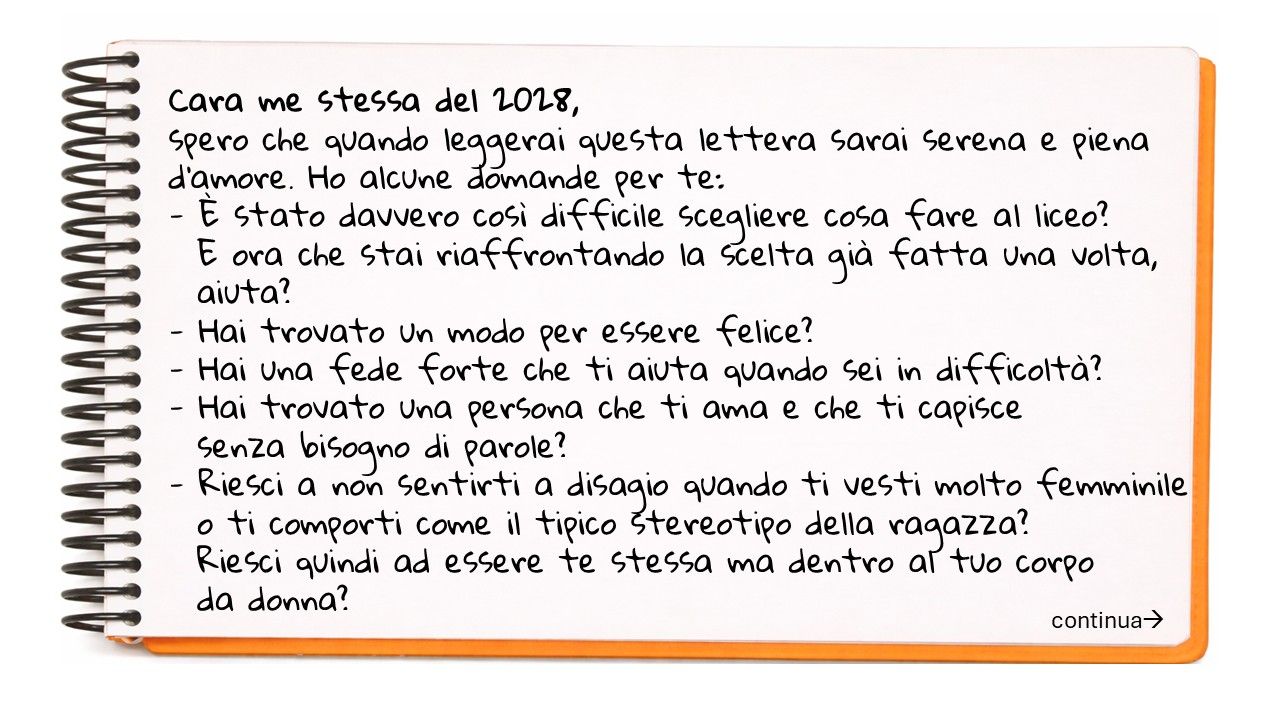 Cara me stessa del 2028,
spero che quando leggerai questa lettera sarai serena e piena
d'amore. Ho alcune domande per te:
- È stato davvero così difficile scegliere cosa fare al liceo?
E ora che stai riaffrontando la scelta già fatta una volta,
aiuta?
- Hai trovato un modo per essere felice?
- Hai una fede forte che ti aiuta quando sei in difficoltà?
- Hai trovato una persona che ti ama e che ti capisce
senza bisogno di parole?
- Riesci a non sentirti a disagio quando ti vesti molto femminile
o ti comporti come il tipico stereotipo della ragazza?
Riesci quindi ad essere te stessa ma dentro al tuo corpo
da donna?
continua→